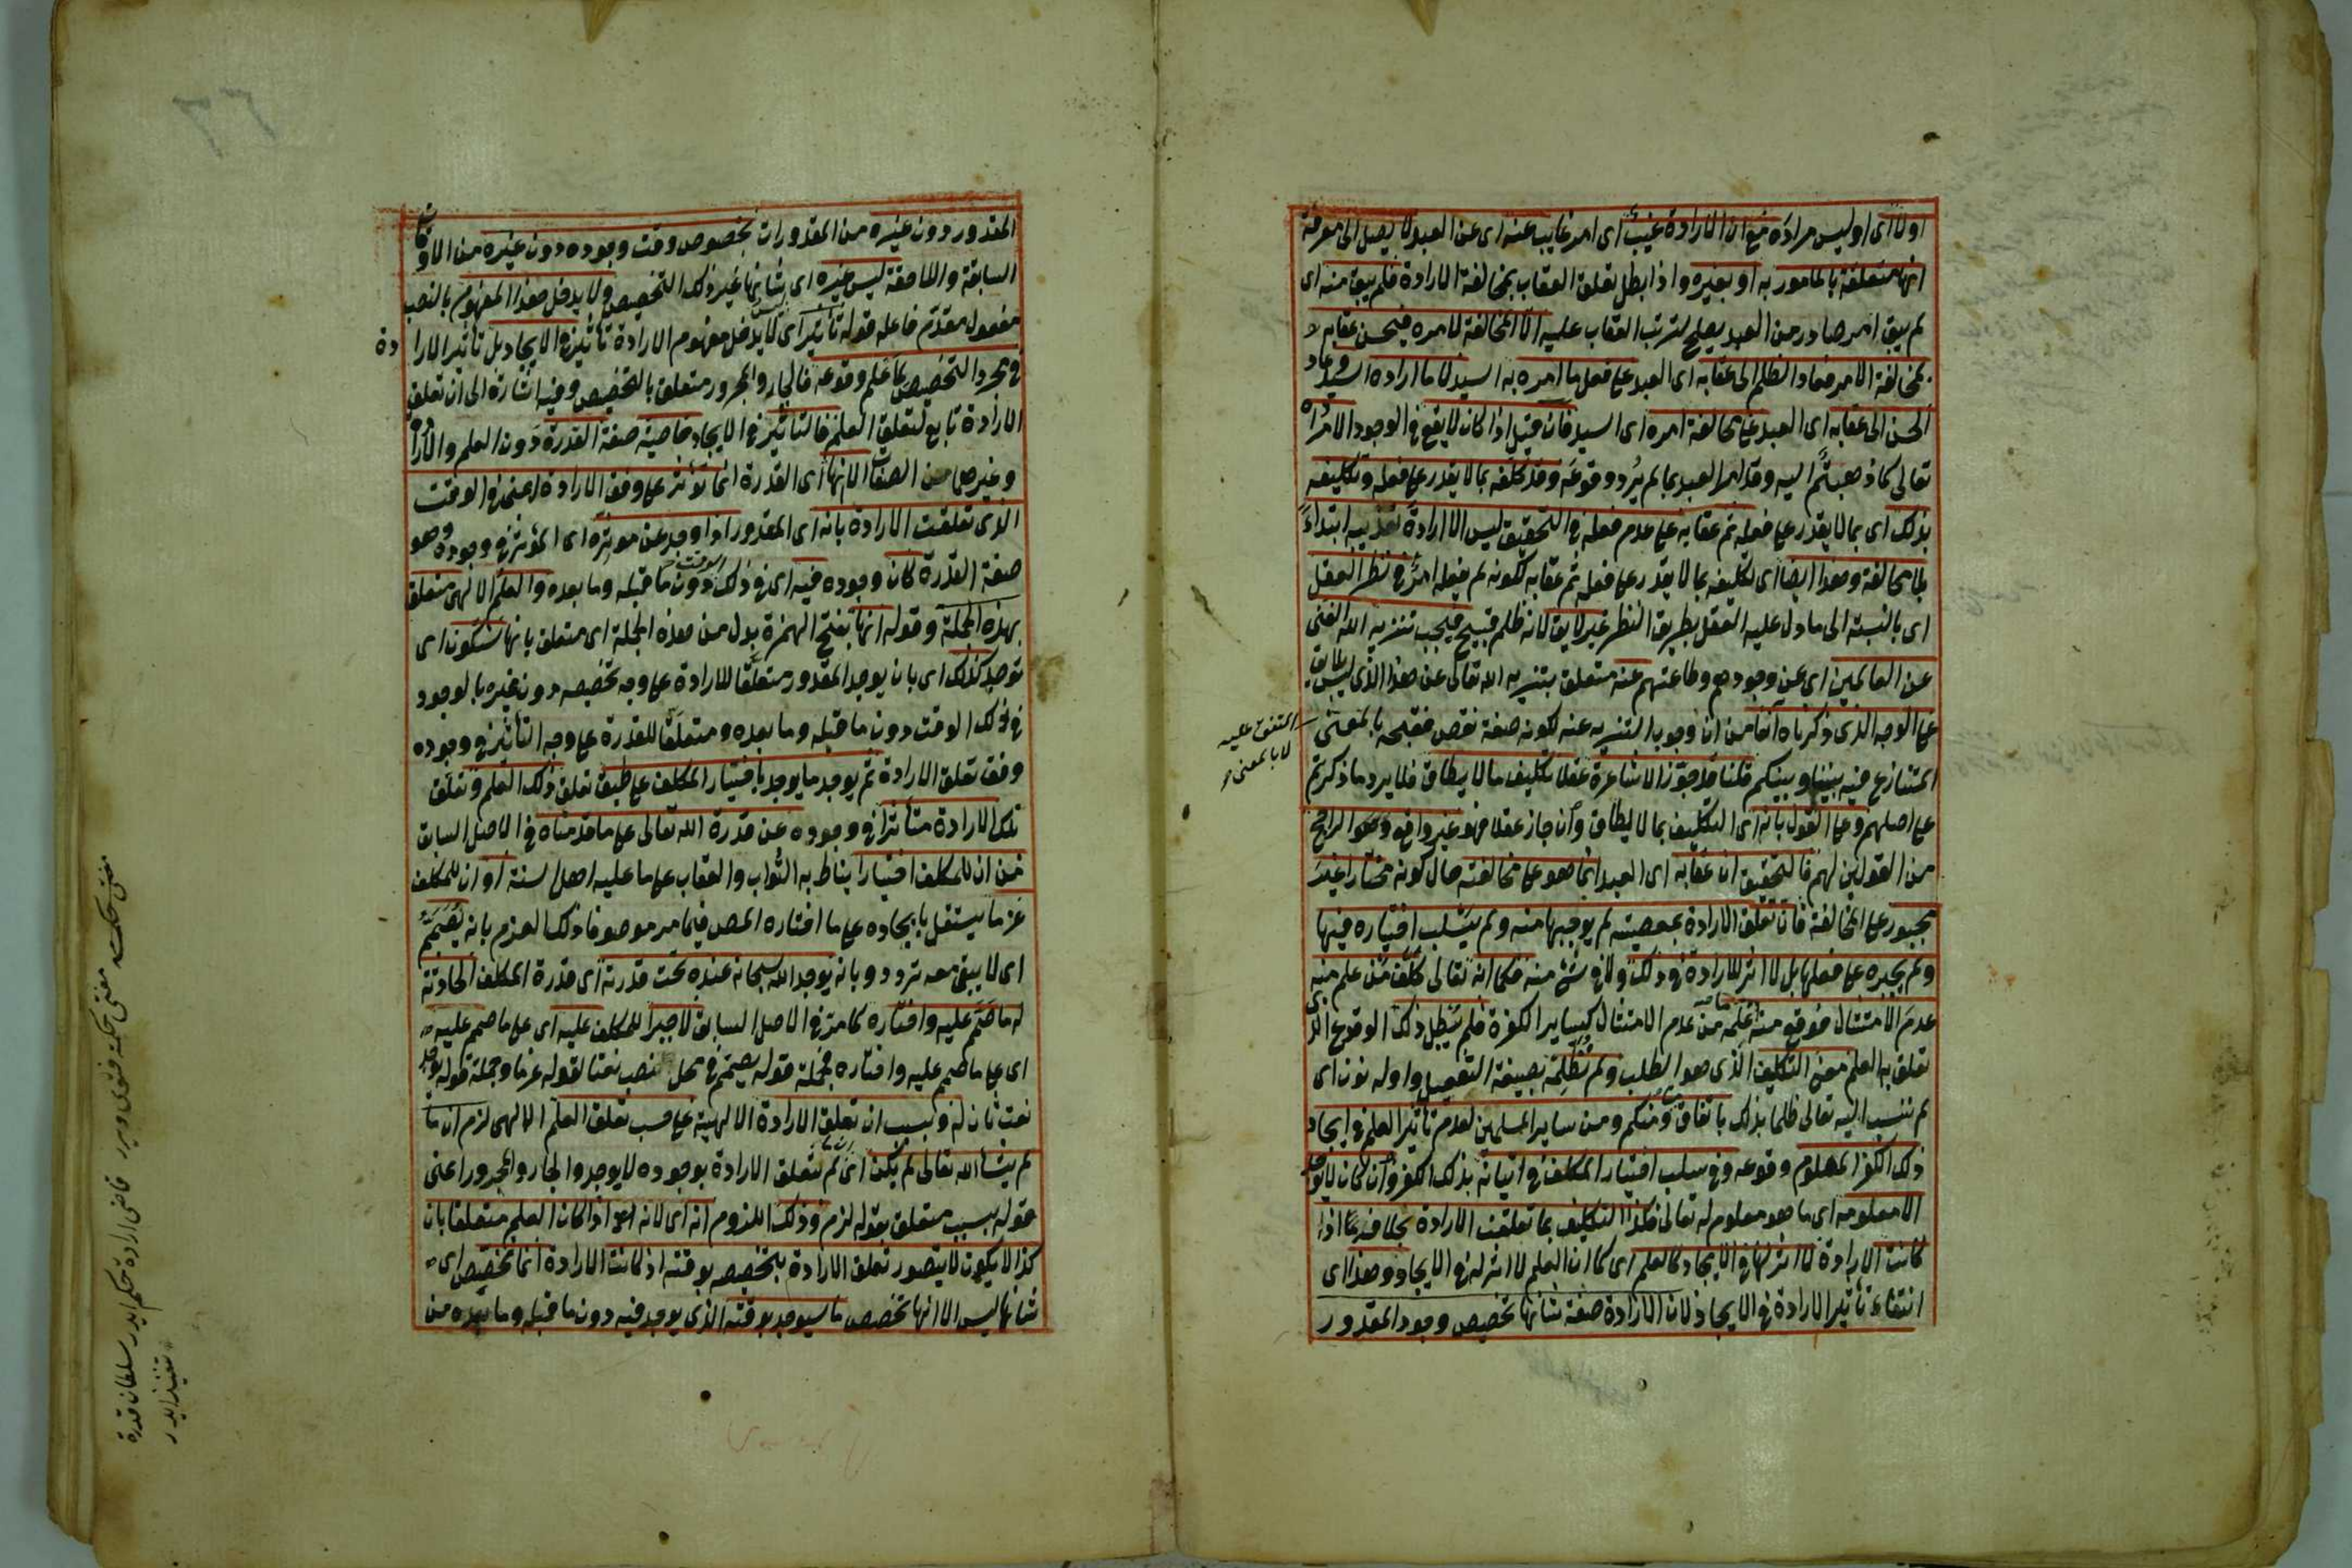 اولا اى اوليس مراده مع ان الارادة غيب اى امر غايب عنه اى عن العبد لا يصل الى معرفة
انها متعلقة بالمامور به او بغيره واذا بطل تعلق العقاب بمخالفة الارادة فلم يبق منه اى
لم يبق امر صادر من العبد يصلح لترتب العقاب عليه الا المخالفة لامره فيحسن عقابه
بمخالفة الامر فعاد الظلم الى عقابه اى العبد على فعل ما امره به السيد لا ما اراده السيد وعاد
الحسن الى عقابه اى العبد على مخالفة امره اى السيد فان قيل اذا كان لا يقع فى الوجود الا مراده
تعالى كما ذهبتم اليه وقد امر العبد بما لم يرد وقوعه وقد كلفه بما لا يقدر على فعله وتكليفه
بذلك اى بما لا يقدر على فعله ثم عقابه على عدم فعله فى التحقيق ليس الا ارادة تعذيبه ابتداءً
بلا مخالفة وهذا ايضا اى تكليفه بما لا يقدر على فعله ثم عقابه لكونه لم يفعله امر فى نظر العقل
اى بالنسبة الى ما دل عليه العقل بطريق النظر غير لايق لانه ظلم قبيح فيجب تنزيه الله الغنى
عن العالمين اى عن وجودهم وطاعتهم عنه متعلق بتنزيه الله تعالى عن هذا الذى ليس بلايق
على الوجه الذى ذكرناه آنفا من ان وجوب التنزيه عنه لكونه صفة نقص فقبحه بالمعنى
المتفق عليه
لا بالمعنى
المتنازع فيه بيننا وبينكم قلنا قد جوز الاشاعرة عقلا تكليف ما لا يطاق فلا يرد ما ذكرتم
على اصلهم وعلى القول بانه اى التكليف بما لا يطاق وان جاز عقلا فهو غير واقع وهو الراجح
من القولين لهم فالتحقيق ان عقابه اى العبد انما هو على مخالفته حال كونه مختارا غير
مجبور على المخالفة فان تعلق الارادة بمعصيته لم يوجبها منه ولم يسلب اختياره فيها
ولم يجبره على فعلها بل لا اثر للارادة فى ذلك ولا فى شئ منه فكما انه تعالى كلف من علم منه
عدم الامتثال فوقع منه ما علمه من عدم الامتثال كساير الكفرة فلم يبطل ذلك الوقوع الذى
تعلق به العلم معنى التكليف الذى هو الطلب ولم نظلمه بصيغة التفعيل واوله نون اى
لم ننسب اليه تعالى ظلما بذلك باتفاق منا ومنكم ومن ساير المسلمين لعدم تأثير العلم فى ايجاد
ذلك الكفر المعلوم وقوعه وفى سلب اختيار المكلف فى اتيانه بذلك الكفر وان كان لا يوجد
الا معلومه اى ما هو معلوم له تعالى فكذا التكليف بما تعلقت الارادة بخلافه اذا
كانت الارادة لا اثر لها فى الايجاد كالعلم اى كما ان العلم لا اثر له فى الايجاد وهذا اى
انتفاء تأثير الارادة فى الايجاد لان الارادة صفة شانها تخصيص وجود المقدور
المقدور دون غيره من المقدورات بخصوص وقت وجوده دون غيره من الاوقات
السابقة واللاحقة ليس غيره اى شانها غير ذلك التخصيص ولا يدخل هذا المفهوم بالنصب
مفعول مقدم فاعله قوله تأثير اى لا يدخل مفهوم الارادة تأثير فى الايجاد بل تأثير الارادة
فى مجرد التخصيص بما علم وقوعه فالجار والمجرور متعلق بالتخصيص وفيه اشارة الى ان تعلق
الارادة تابع لتعلق العلم فالتأثير فى الايجاد خاصية صفة القدرة دون العلم والارادة
وغيرها من الصفات الا انها اى القدرة انما تؤثر على وفق الارادة اعنى فى الوقت
الذى تعلقت الارادة بانه اى المقدور اذا وجد عن مؤثره اى المؤثر فى وجوده وهو
صفة القدرة كان وجوده فيه اى فى ذلك الوقت دون ما قبله وما بعده والعلم الالهى متعلق
بهذه الجملة وقوله انها بفتح الهمزة بدل من هذه الجملة اى متعلق بانها ستكون اى
توجد كذلك اى بان يوجد المقدور متعلقا للارادة على وجه تخصيصه دون غيره بالوجود
فى ذلك الوقت دون ما قبله وما بعده ومتعلقا للقدرة على وجه التأثير فى وجوده
وفق تعلق الارادة ثم يوجد ما يوجد باختيار المكلف على طبق تعلق ذلك العلم وتعلق
تلك الارادة متأثرا فى وجوده عن قدرة الله تعالى على ما قدمناه فى الاصل السابق
من ان للمكلف اختيارا يناط به الثواب والعقاب على ما عليه اهل السنة او ان للمكلف
عزما يستقل بايجاده على ما اختاره المص فيما مر موصوفا ذلك العزم بانه يصمم
اى لا يبقى معه تردد وبانه يوجد الله سبحانه عنده تحت قدرته اى قدرة المكلف الحادثة
له ما صمم عليه واختاره كما مر فى الاصل السابق لا جبرا للمكلف عليه اى على ما صمم عليه
اى على ما صمم عليه واختاره فجملة قوله يصمم فى محل نصب نعتا لقوله عزما وجملة قوله يوجد
نعت ثان له وبسبب ان تعلق الارادة الالهية على حسب تعلق العلم الالهى لزم ان ما
لم يشأ الله تعالى لم يكن اى ما لم تتعلق الارادة بوجوده لا يوجد والجار والمجرور اعنى
قوله بسبب متعلق بقوله لزم وذلك اللزوم انه اى لانه اذا كان العلم متعلقا بان
كذا لا يكون لا يتصور تعلق الارادة بتخصيصه بوقته اذ كانت الارادة انما تخصص اى
شانها ليس الا انها تخصص ما سيوجد بوقته الذى يوجد فيه دون ما قبله وما بعده من